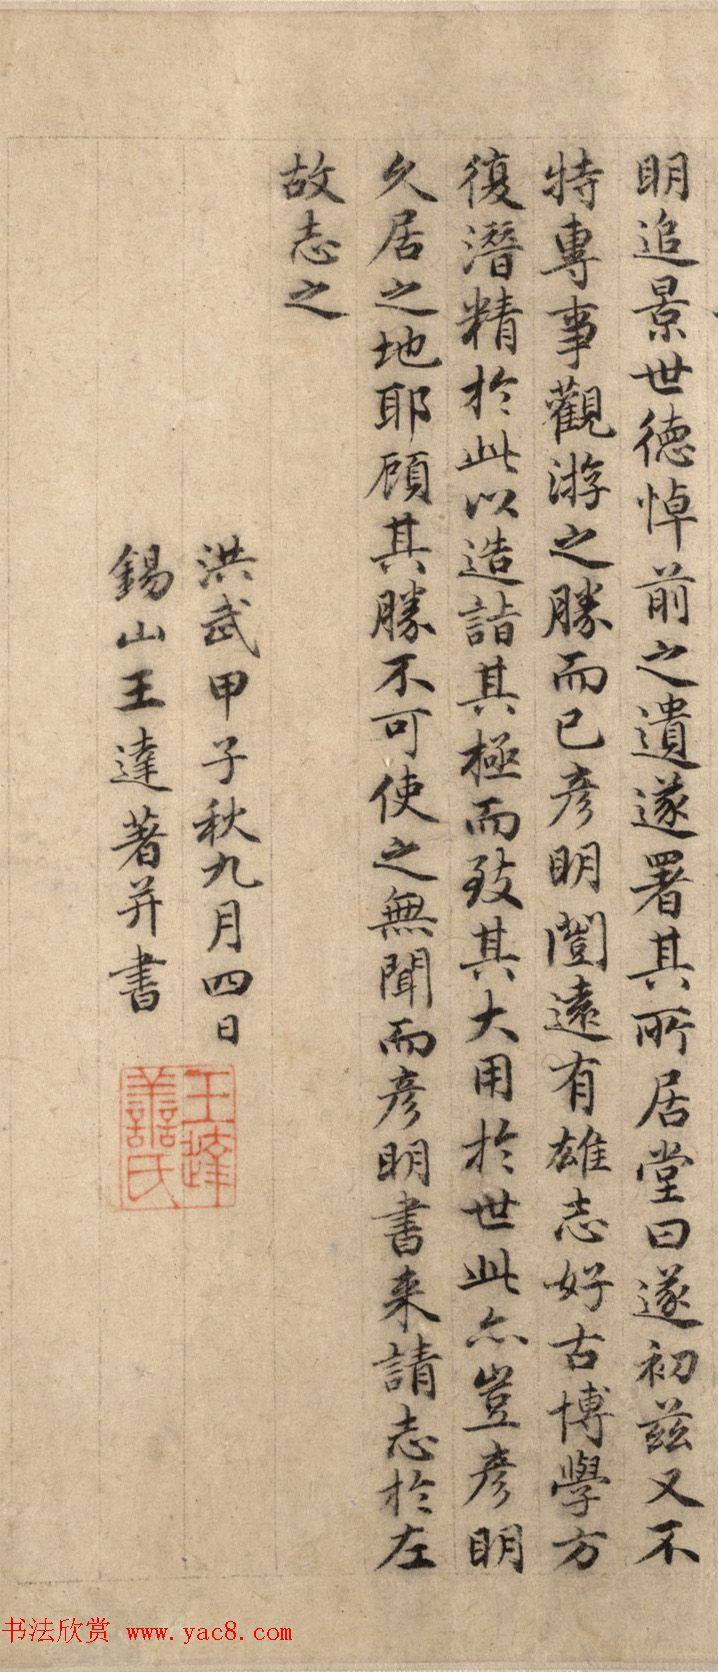 明追景世德悼前之遺遂署其所居堂曰遂初兹又不
特專事觀游之勝而已彦明闓遠有雄志好古博學方
復潛精於此以造詣其極而致其大用於世此亦豈彦明
久居之地耶顧其勝不可使之無聞而彦明書来請志於左
故志之
洪武甲子秋九月四日
錫山王達著并書
王達
善氏
书法欣赏 www.yac8.com